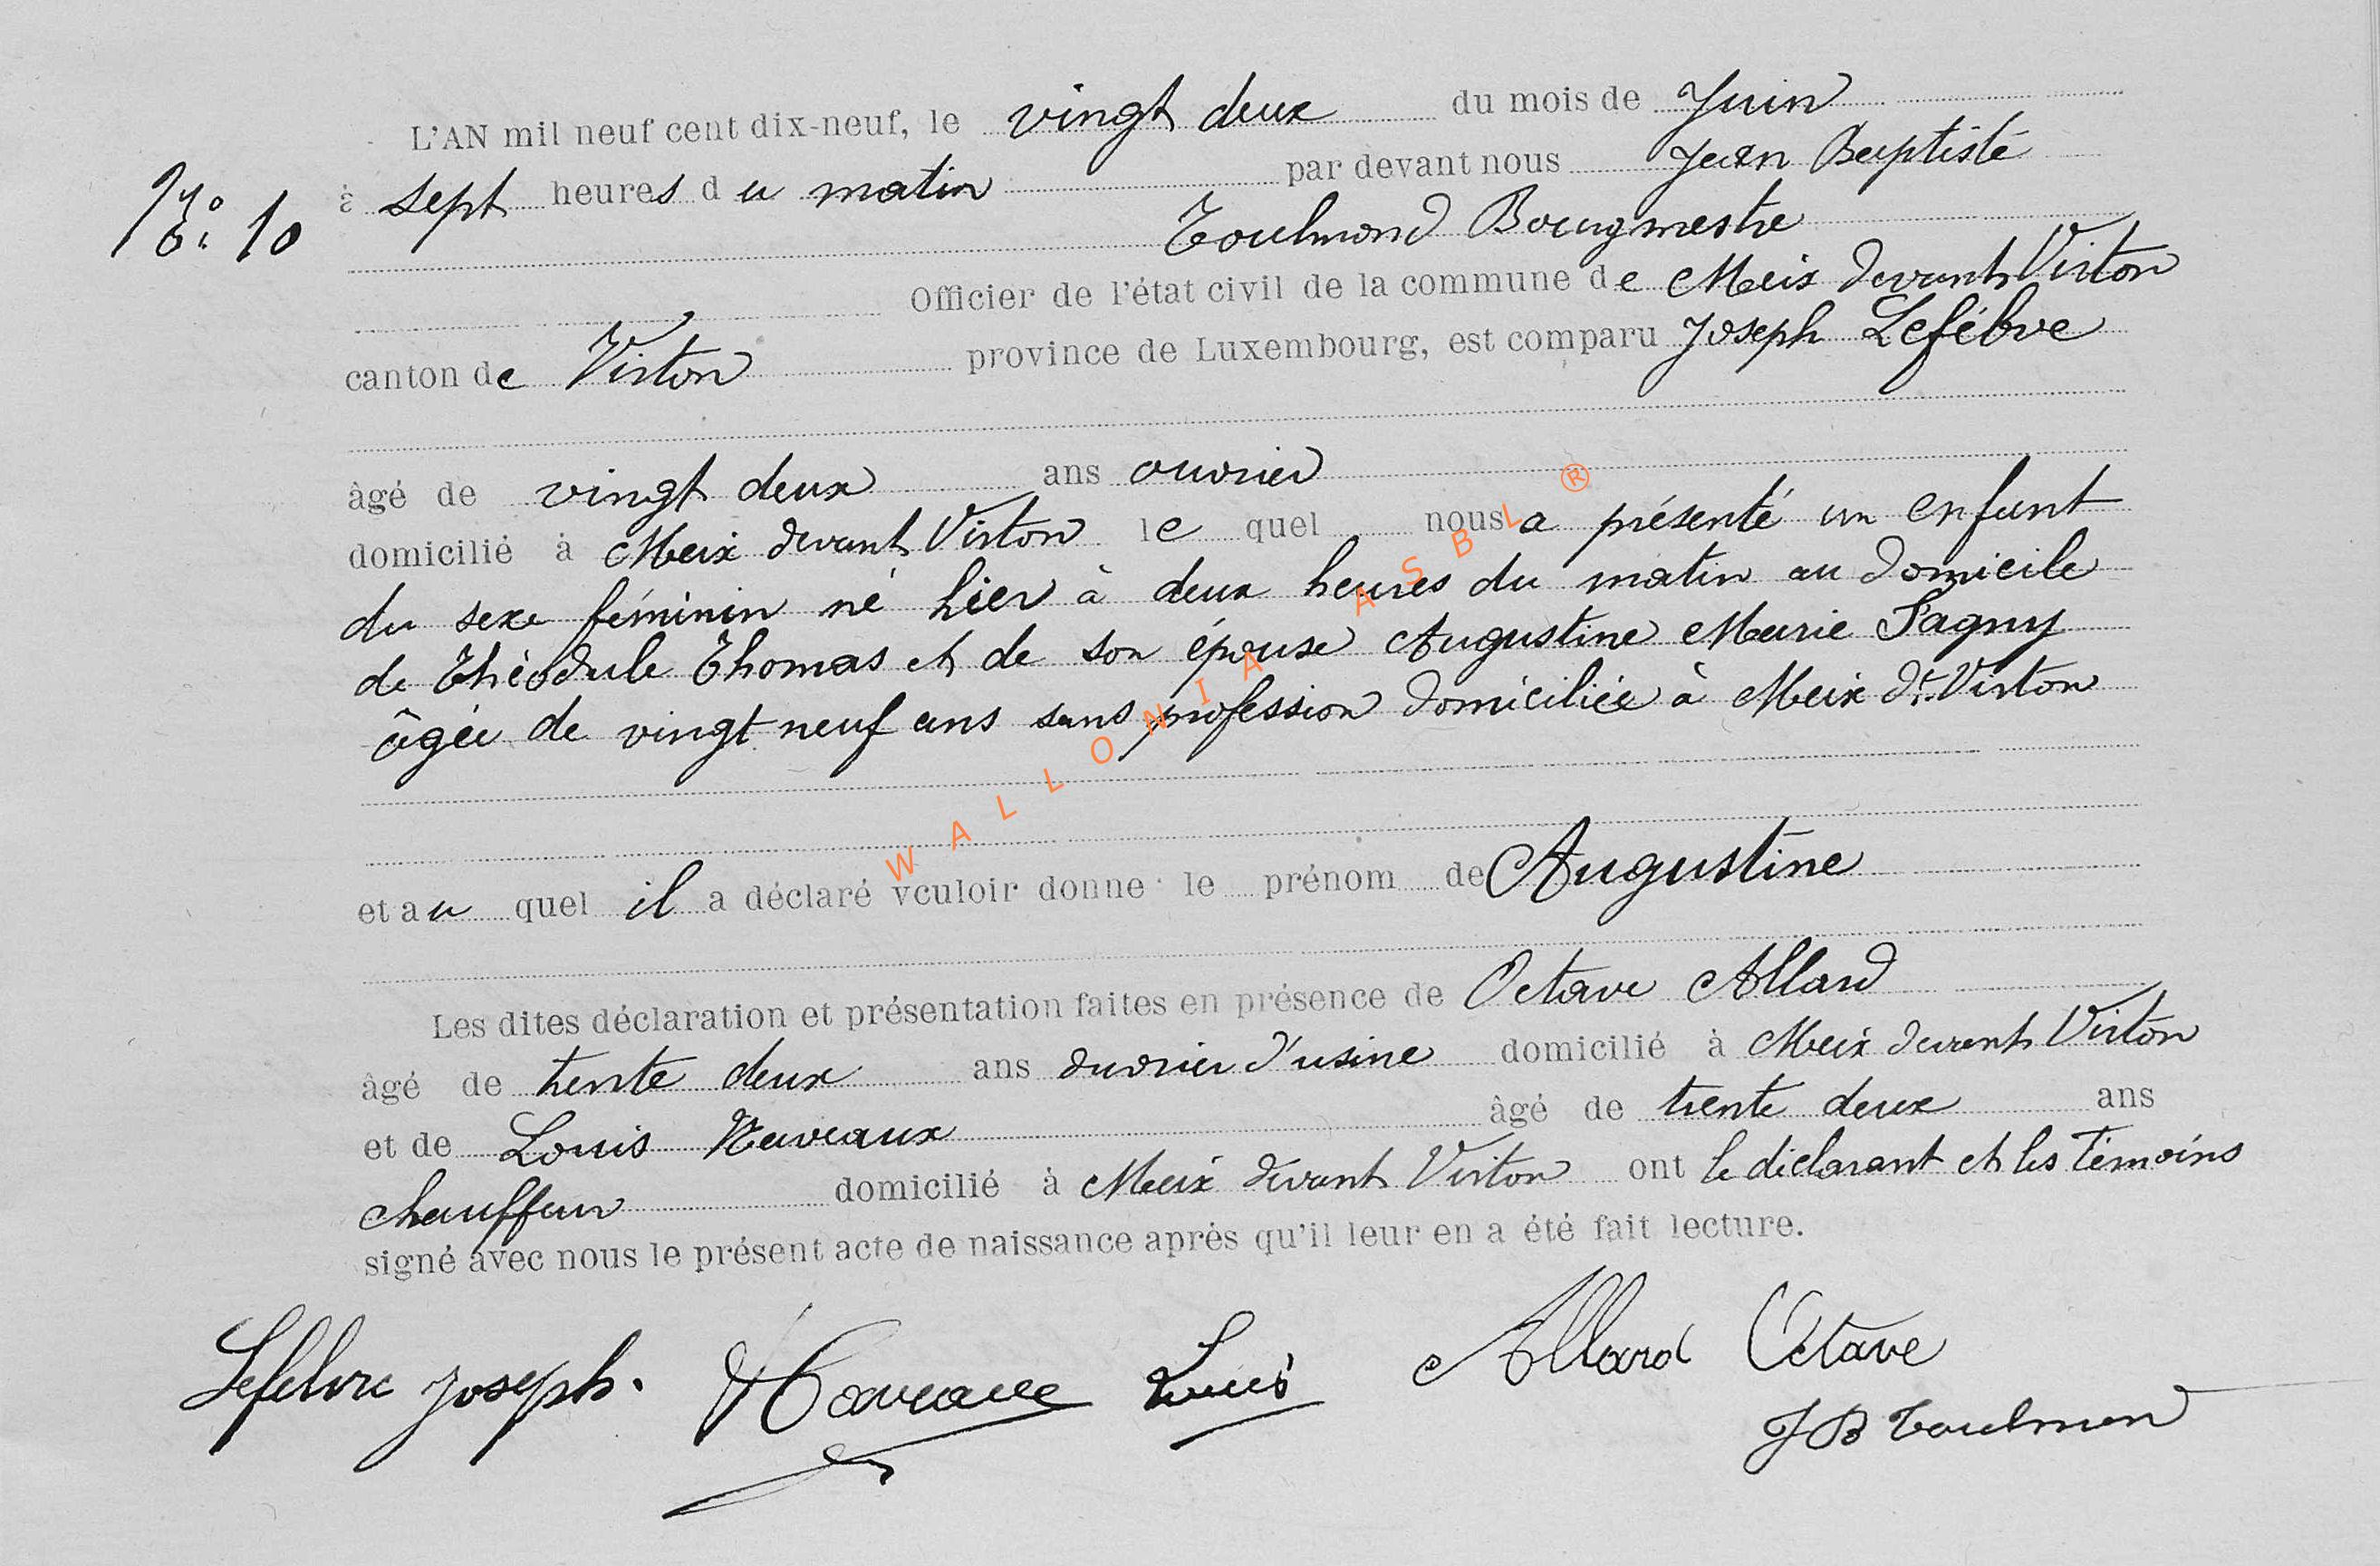 L'AN mil neuf cent dix-neuf, le vingt deux du mois de Juin
N° 10
à sept heures du matin par devant nous Jean Baptiste
Toulmond Bourgmestre
Officier de l'état civil de la commune de Meix devant Virton
canton de Virton province de Luxembourg, est comparu Joseph Lefébvre
âgé de vingt deux ans ouvrier
domicilié à Meix devant Virton le quel nous a présenté un enfant
du sexe féminin né hier à deux heures du matin au domicile
de Théodule Thomas et de son épouse Augustine Marie Pagny
âgée de vingt neuf ans sans profession domiciliée à Meix dt Virton
et au quel il a déclaré vouloir donne le prénom de Augustine
Les dites déclaration et présentation faites en présence de Octave Allard
âgé de trente deux ans ouvrier d'usine domicilié à Meix devant Virton
et de Louis Naveaux âgé de trente deux ans
chauffeur domicilié à Meix devant Virton ont le déclarant et les témoins
signé avec nous le présent acte de naissance après qu'il leur en a été fait lecture.
Lefebvre Joseph. Naveaux Louis Allard Octave
JB Toulmond
WALLONIA ASBL ®